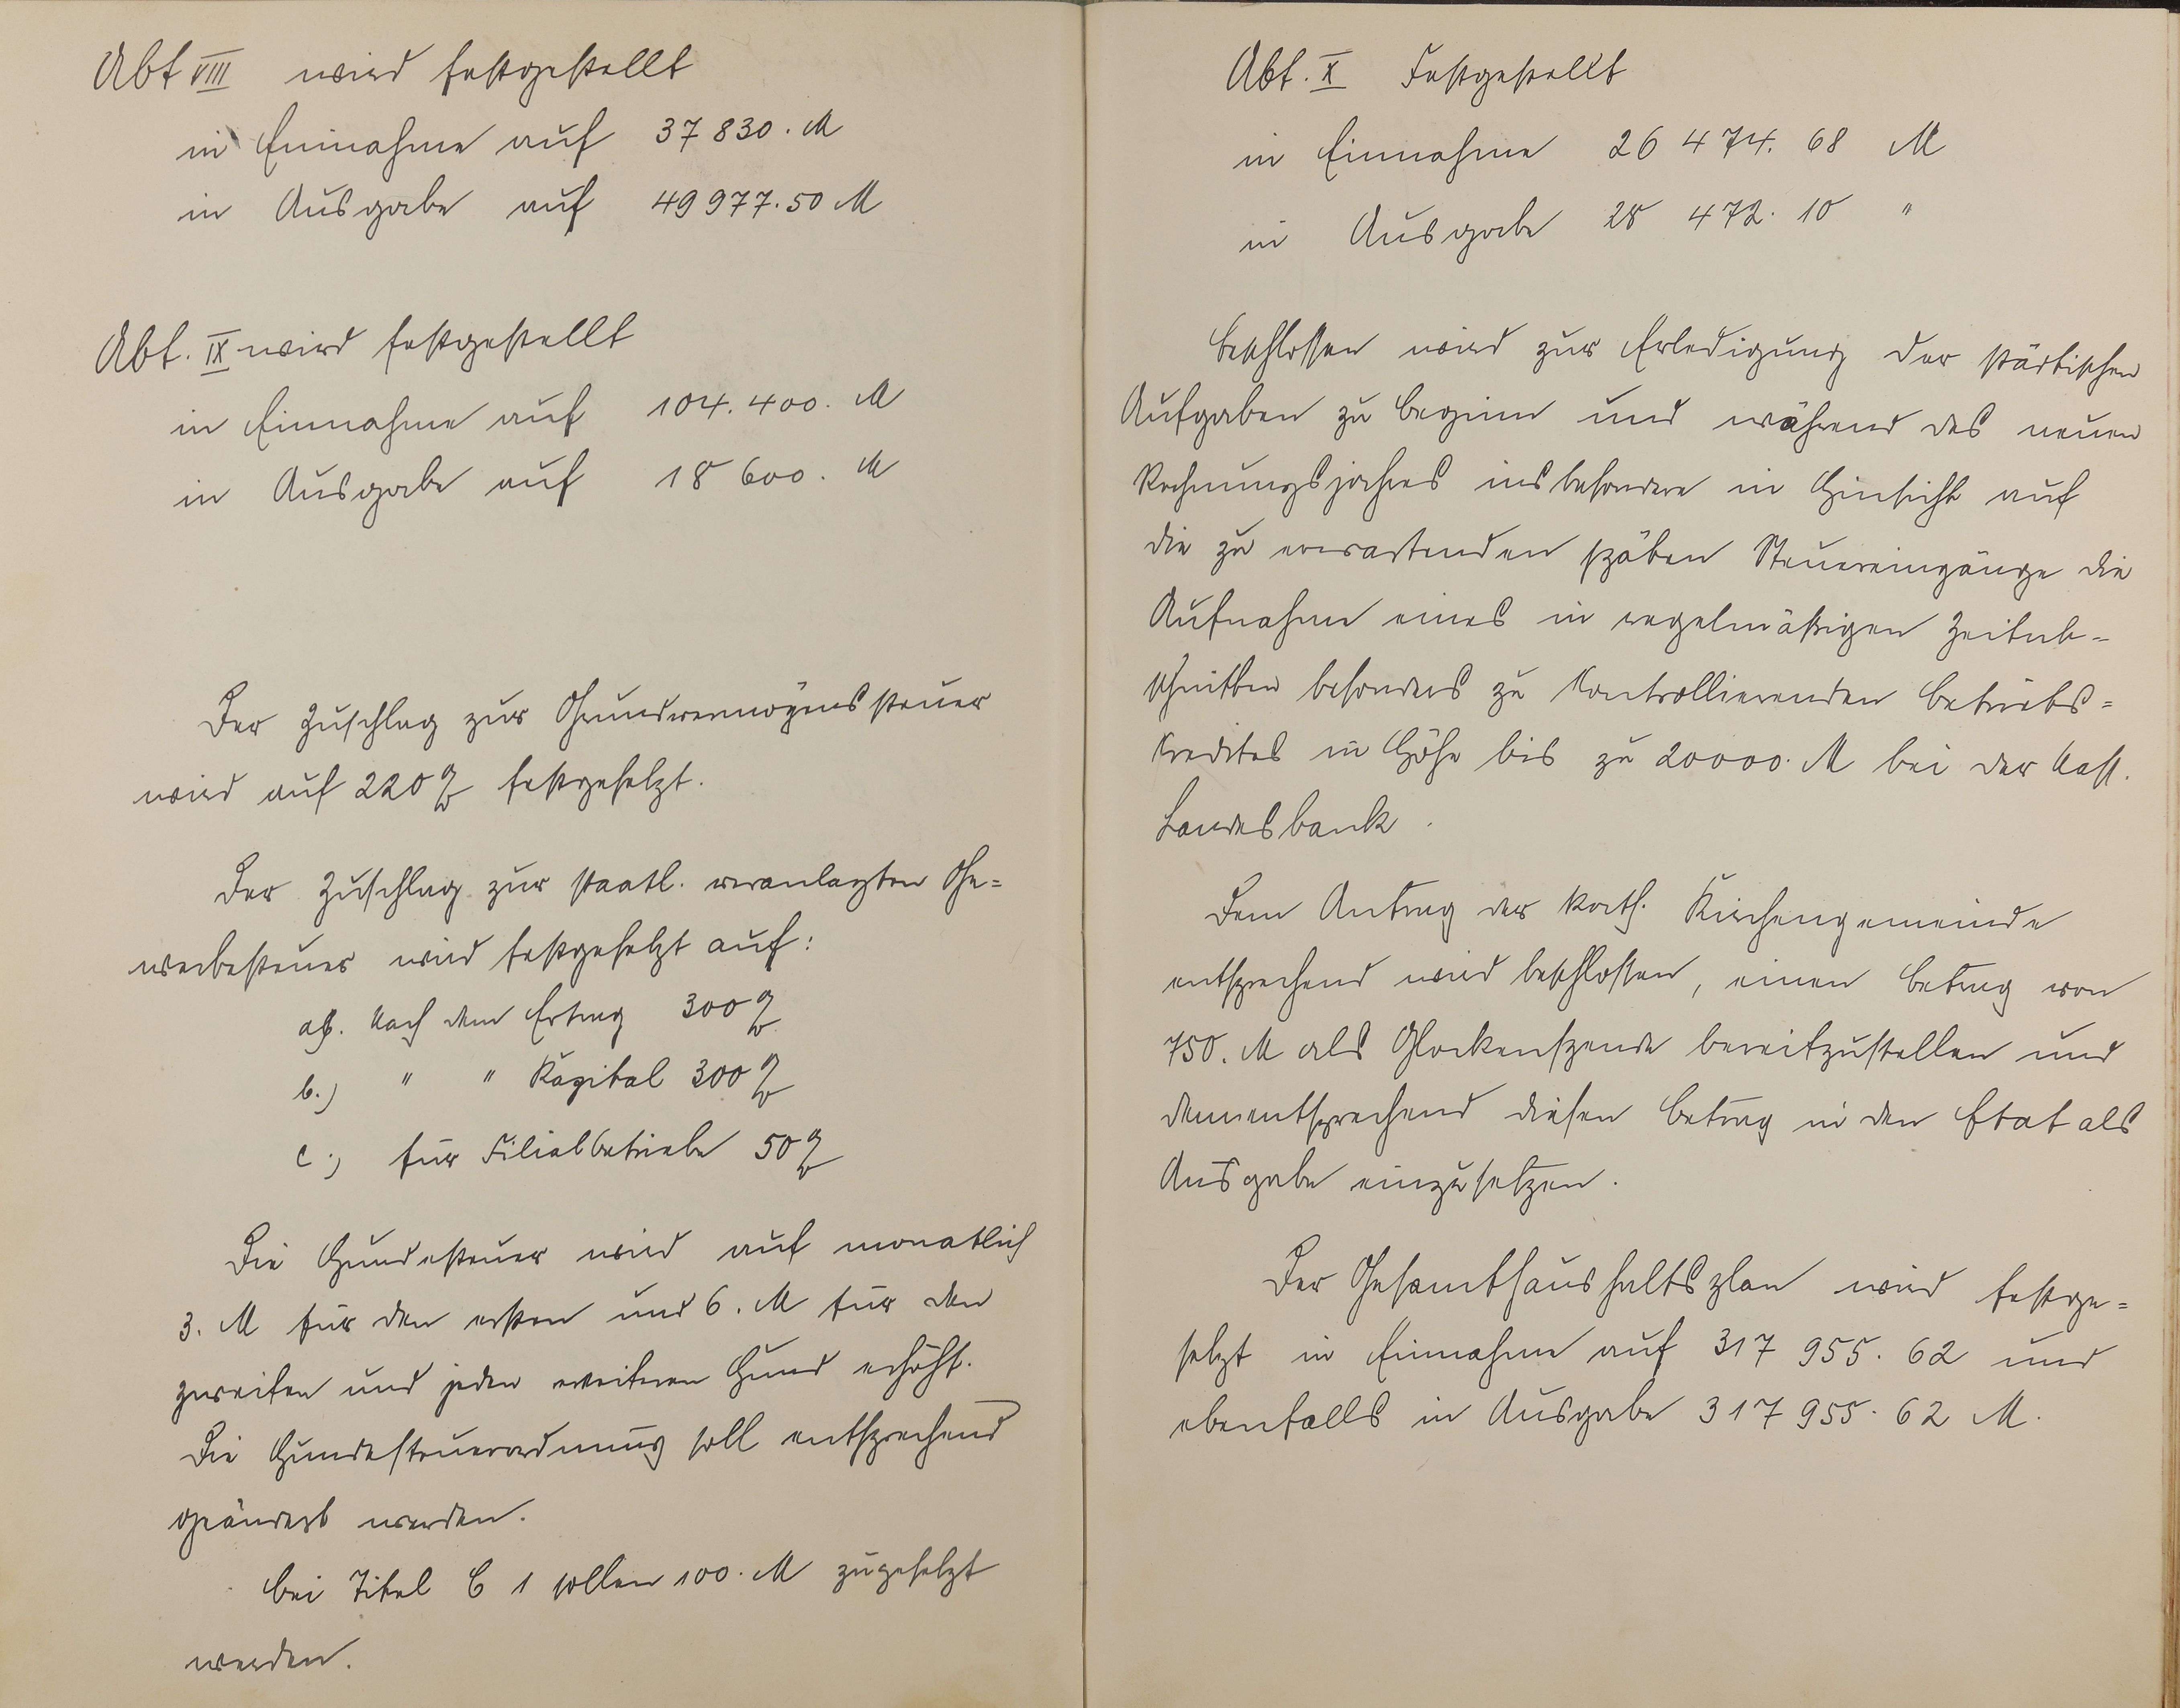 Abt VIII wird festgestellt
in Einnahme auf 37 830. M
in Ausgabe auf 49 977.50 M
Abt. IX wird festgestellt
in Einnahme auf 104.400. M
in Ausgabe auf 18 600. M
Der Zuschlag zur Grundvermögenssteuer
wird auf 220 % festgesetzt.
Der Zuschlag zur staatl. veranlagten Ge=
werbesteuer wird festgesetzt auf:
a). Nach dem Ertrag 300 %
b.) " " Kapital 300 %
c.) für Filialbetriebe 50 %
Die Hundesteuer wird auf monatlich
3. M für den ersten und 6. M für den
zweiten und jeden weiteren Hund erhöht.
Die Hundesteuerordnung soll entsprechend
geändert werden.
Bei Titel C 1 sollen 100. M zugesetzt
werden.
Abt. X Festgestellt
in Einnahme 26 474. 68 M
in Ausgabe 28 472. 10 "
Beschlossen wird zur Erledigung der städtischen
Aufgaben zu Beginn und während des neuen
Rechnungsjahres insbesondere in Hinsicht auf
die zu erwartenden späten Steuereingänge die
Aufnahme eines in regelmäßigen Zeitab-
schnitten besonders zu kontrollierenden Betriebs=
kredites in Höhe bis zu 20000. M bei der Nass.
Landesbank.
Dem Antrag der kath. Kirchengemeinde
entsprechend wird beschlossen, einen Betrag von
750. M als Glockenspende bereitzustellen und
dementsprechend diesen Betrag in den Etat als
Ausgabe einzusetzen.
Der Gesamthaushaltsplan wird festge=
setzt in Einnahme auf 317 955. 62 und
ebenfalls in Ausgabe 317 955. 62 M.